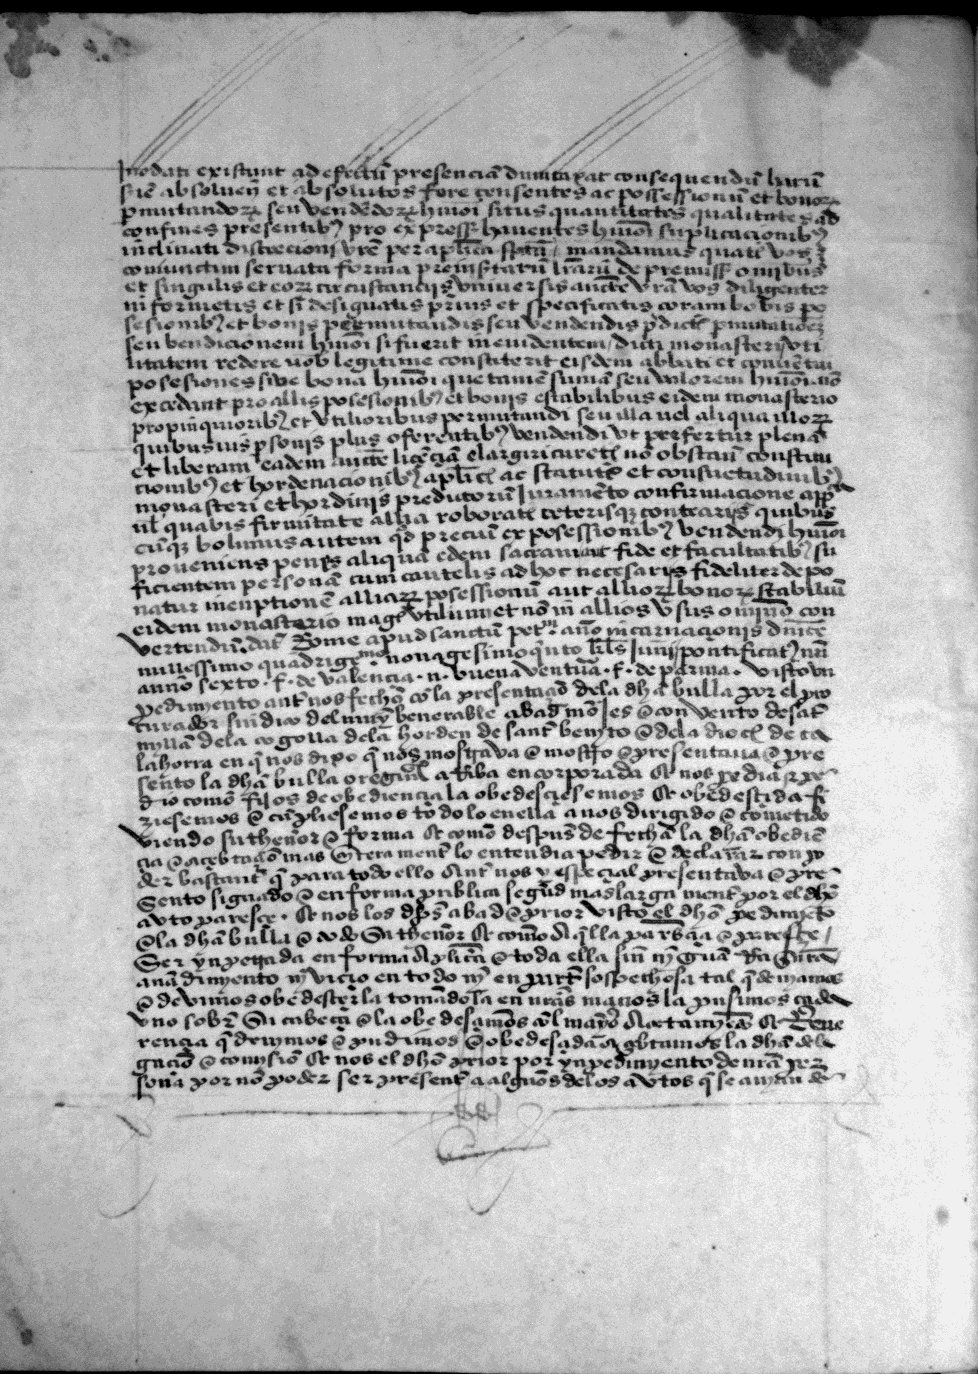 Inodati existunt ad efectũ presenciũ dumtaxat consequendũ harũ
seriẽ absoluen̄ et absolutos fore censentes ac possessionũ et bonoꝝ
permutandoꝝ seu vendẽdoꝝ hmõi situs quantitates qualitates ad
confines presentibꝰ pro expressis haventes hmõi suplicacionibꝰ
inclinati discrecioni vrẽ per aplica scriptã mandamus quatẽ vos
comunctim servata forma preinsertarũ lrarũ de premiss omnibus
et singulis et eoꝝ circustancijs vniversis aucte nrã vos diligenter
informetis et si designatis prius et specificatis coram bobis po
sesionibꝰ et bonijs permutandis seu vendendis p̃dict permutacioẽꝫ
seu bendicionem hmõi si fuerit in evidentem dicti monasterij vti
litatem redere vob legitime constiterit eisdem abbati et conuẽtui
posesiones sive bona hmõi que tamẽ sumã seu valorem hmõi nõ
excedant pro allis posesionibꝰ et bonis estabilibus eidem monasterio
propinquioribꝰ et vtilioribus permutandi seu illa uel aliqua illoꝝ
quibusuis psonis plus oferentibꝰ vendendi vt perfertur plenã
et liberam eadem aucte licẽciã elargiri curetꝭ nõ obstãn constitu
cionibꝰ et hordenacionibꝰ aplicꝭ ac statutꝭ et consuetudinibꝰ
monasteri et hordinis predictorũ Juramẽto confirmacione app
ul quabis firmitate allia roboratꝭ ceterisqꝫ contrarijs quibus
cũqꝫ bolumus autem qd preciũ ex posessionibꝰ vendendi hmõi
proveniens penes aliquã edem sacram aut fide et facultatibꝰ su
ficientem personã cum cautelis ad hoc necesarijs fideliter depo
natur in enptionẽ alliaꝝ posessionũ aut allioꝝ bonoꝝ stabiliũ
eidem monasterio magꝭ vtilium et nõ in allios vsus omino con
vertendũ. dat Rome apud sanctũ petꝝ año incarnacionis dnice
millessimo quadrigẽmo nonagesimo qnto kls Junij pontificatꝰ nrĩ
anno sexto . f . de valencia . n . buena ventura . f . de parma . visto vn
pedimyento ant nos fecho cõ la presentaciõ dela dha bulla por el pro
curador sindico del muy benerable abad mõjes e convento de sant
myllã dela cogolla dela horden de sant benyto e dela dioc de ca
lahorra en q̃ nos dixo q̃ nos mostrava e mostro e presentava e pre
sento la dha bulla oreginal arriba encorporada e nos pedia e pe
dio como fijos de obediencia la obedesciesemos e obedescida fi
ziesemos e cũpliesemos todo lo en ella a nos dirigido e cometido
viendo su thenor e forma e como despues de fecha la dha obediẽ
cia e acebtaciõ mas enteramente lo entendia pedir e declarar con po
der bastante q̃ para todo ello ante nos y especial presentava e pre
sento signado e en forma publica segund mas larga mente por el dho
avto paresçe . e nos los dhos abad e prior visto el dho pedimyẽto
e la dha bulla e todo su thenor e como aq̃lla paresçia e paresçe
ser ynpetrada en forma aplica e toda ella sin nyguã
anadimyento ny vicio en todo ny en parte sospechosa tal q̃ demamos
e devimos obedesçerla tomãdola en nras manos la pusimos cada
vno sobre su cabeça e la obedesçimos cõ el mayor acatamyẽto e Reve
rencia q̃ devymos e pudimos e obedesçida acebtamos la dha dele
gaciõ e comysiõ e nos el dho prior por ynpedimyento de nra per
sona por nõ poder ser presente a algunos delos avtos q̃ se avian de